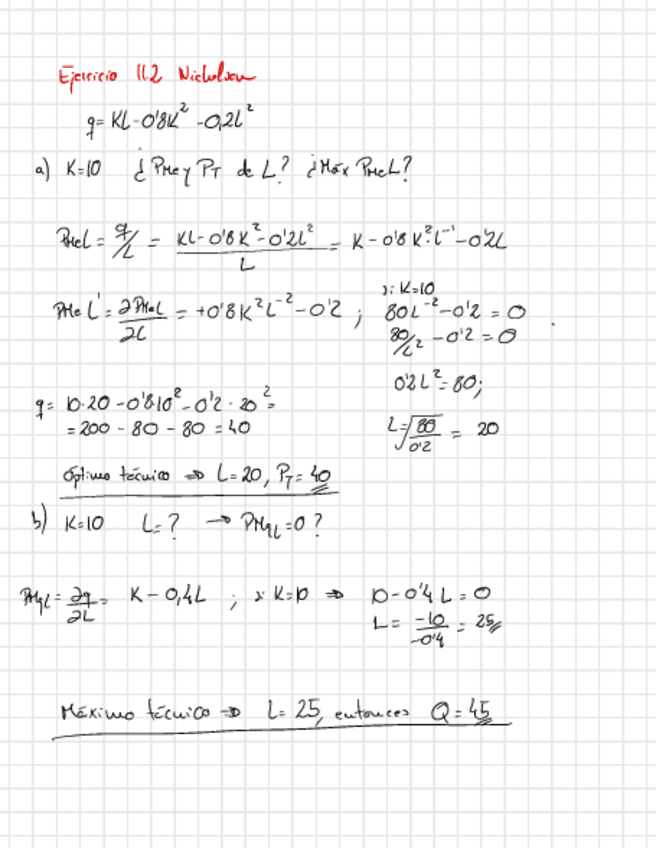 Ejercicio 11.2 Nicholson
q = KL - 0'8K² - 0,2L²
a) K=10 ¿PMe y PT de L? ¿Máx PMeL?
PMeL = q/L = (KL - 0'8K² - 0'2L²)/L = K - 0'8K²·L⁻¹ - 0'2L
PMeL' = ∂PMeL/∂L = +0'8K²L⁻² - 0'2 ;
si K=10
80L⁻² - 0'2 = 0
80/L² - 0'2 = 0
0'2L² = 80;
L = √(80/0'2) = 20
q = 10·20 - 0'8·10² - 0'2·20² =
= 200 - 80 - 80 = 40
Óptimo técnico ⇒ L=20, PT=40
b) K=10 L=? → PMgL=0?
PMgL = ∂q/∂L = K - 0,4L ; si K=10 ⇒ 10 - 0'4L = 0
L = -10/-0'4 = 25
Máximo técnico ⇒ L=25, entonces Q=45